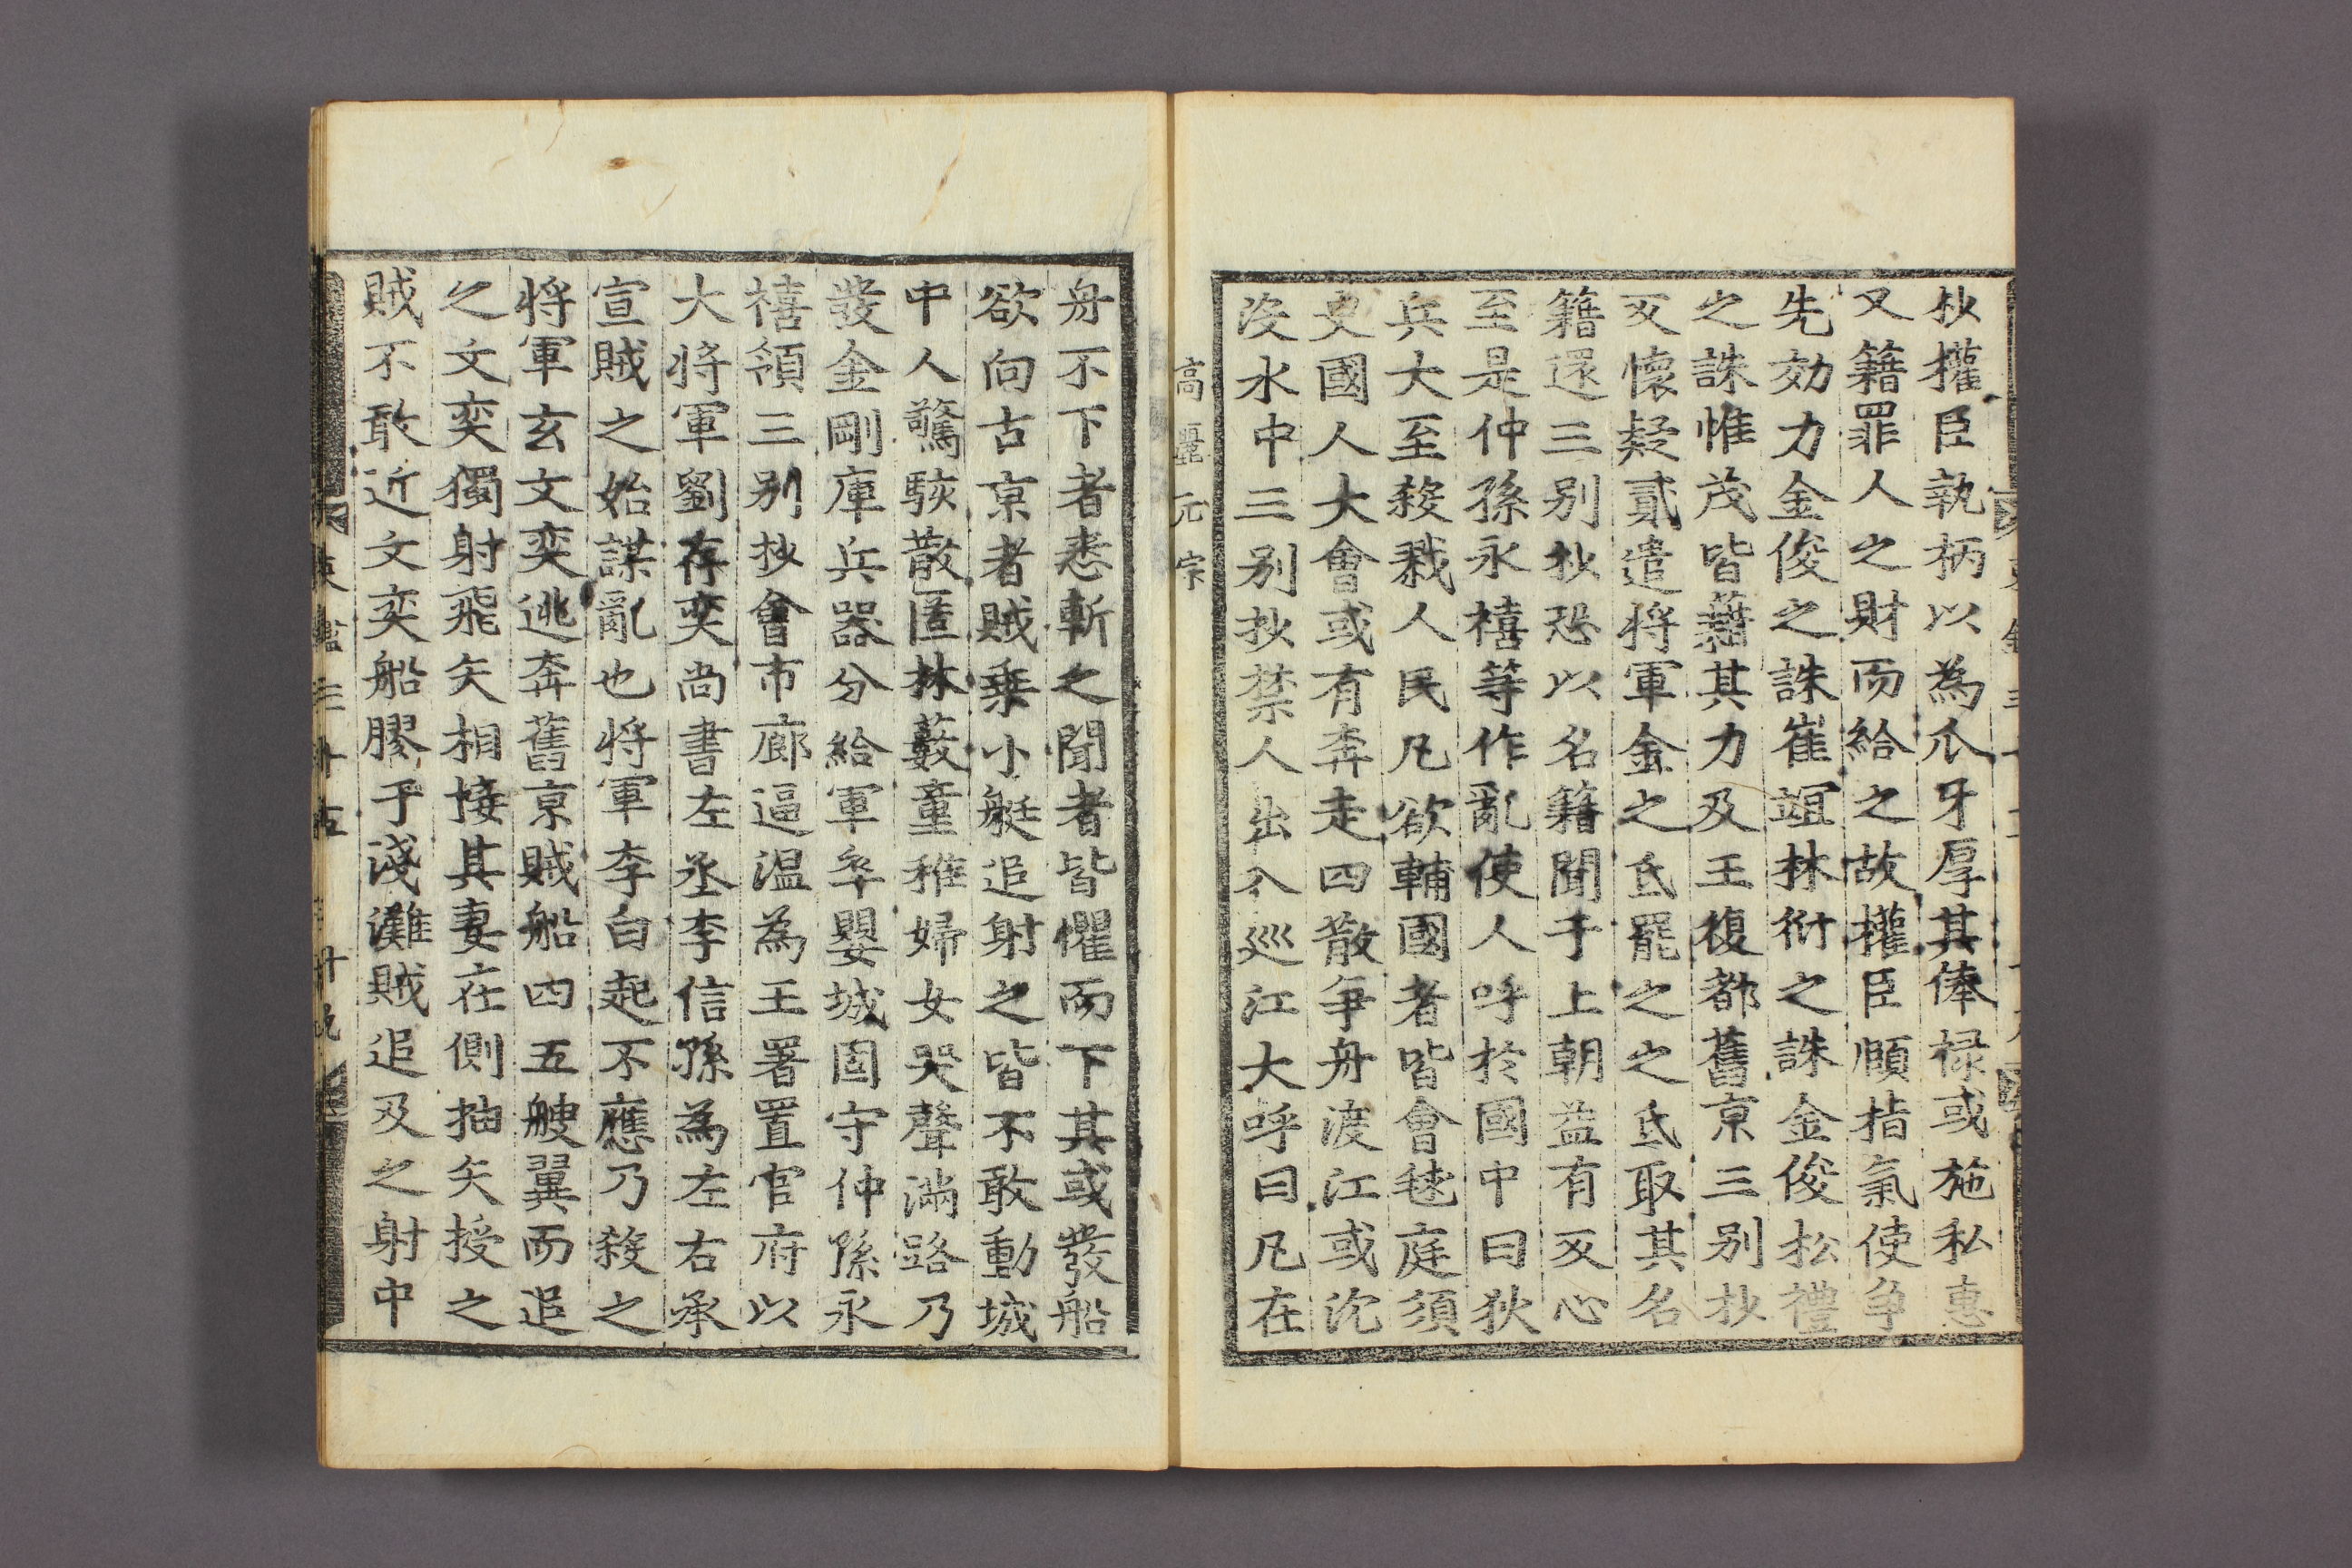 抄權臣執柄以為爪牙厚其俸祿或施私惠
又籍罪人之財而給之故權臣頤指氣使爭
先効力金俊之誅崔竩林衍之誅金俊松禮
之誅惟茂皆藉其力及王復都舊京三別抄
又懷疑貳遣將軍金之氐罷之之氐取其名
籍還三別抄恐以名籍聞于上朝益有叉心
至是仲孫永禧等作亂使人呼於國中曰狄
兵大至殺戮人民凡欲輔國者皆會毬庭須
臾國人大會或有奔走四散爭舟渡江或沉
沒水中三別抄禁人出入巡江大呼曰凡在
高麗元宗
舟不下者悉斬之聞者皆懼而下其或發船
欲向古京者賊乘小艇追射之皆不敢動城
中人驚駭散匿林藪童稚婦女哭聲滿路乃
發金剛庫兵器分給軍卒嬰城固守仲孫永
禧領三別抄會市廊逼溫為王署置官府以
大將軍劉存奕尚書左丞李信孫為左右承
宣賊之始謀亂也將軍李白起不應乃殺之
將軍玄文奕逃奔舊京賊船四五艘翼而追
之文奕獨射飛矢相接其妻在側抽矢授之
賊不敢近文奕船膠于淺灘賊追及之射中